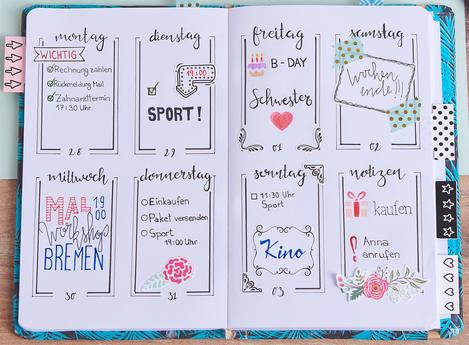 montag
WICHTIG
Rechnung zahlen
Rückmeldung Mail
Zahnarzttermin
17:30 Uhr
28
dienstag
19:00
SPORT!
29
mittwoch
MAL
19
00
Workshop
BREMEN
30
donnerstag
Einkaufen
Paket versenden
Sport
19:00 Uhr
31
freitag
B-DAY
Schwester
01
samstag
Wochen
ende!!!
02
sonntag
11:30 Uhr
Sport
Kino
03
notizen
kaufen
! Anna
anrufen